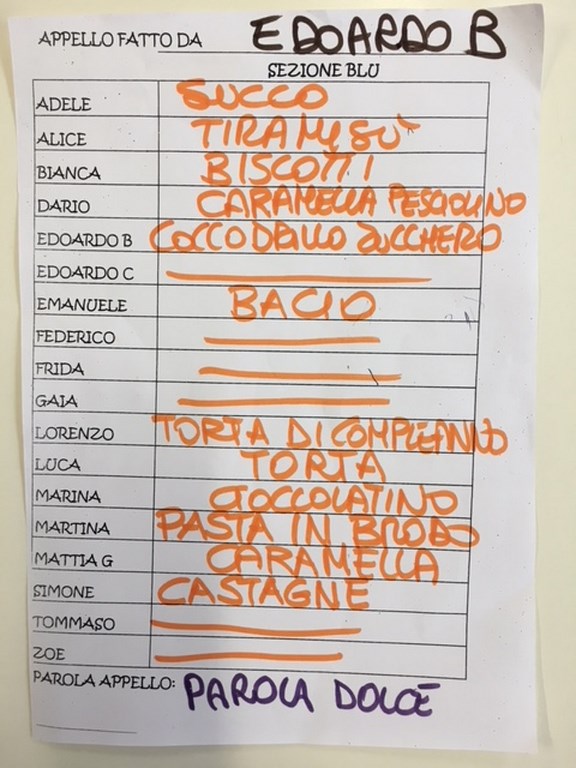 APPELLO FATTO DA EDOARDO B
SEZIONE BLU
ADELE SUCCO
ALICE TIRAMISÙ
BIANCA BISCOTTI
DARIO CARAMELLA PESCIOLINO
EDOARDO B COCCODRILLO ZUCCHERO
EDOARDO C
EMANUELE BACIO
FEDERICO
FRIDA
GAIA
LORENZO TORTA DI COMPLEANNO
LUCA TORTA
MARINA CIOCCOLATINO
MARTINA PASTA IN BRODO
MATTIA G CARAMELLA
SIMONE CASTAGNE
TOMMASO
ZOE
PAROLA APPELLO: PAROLA DOLCE